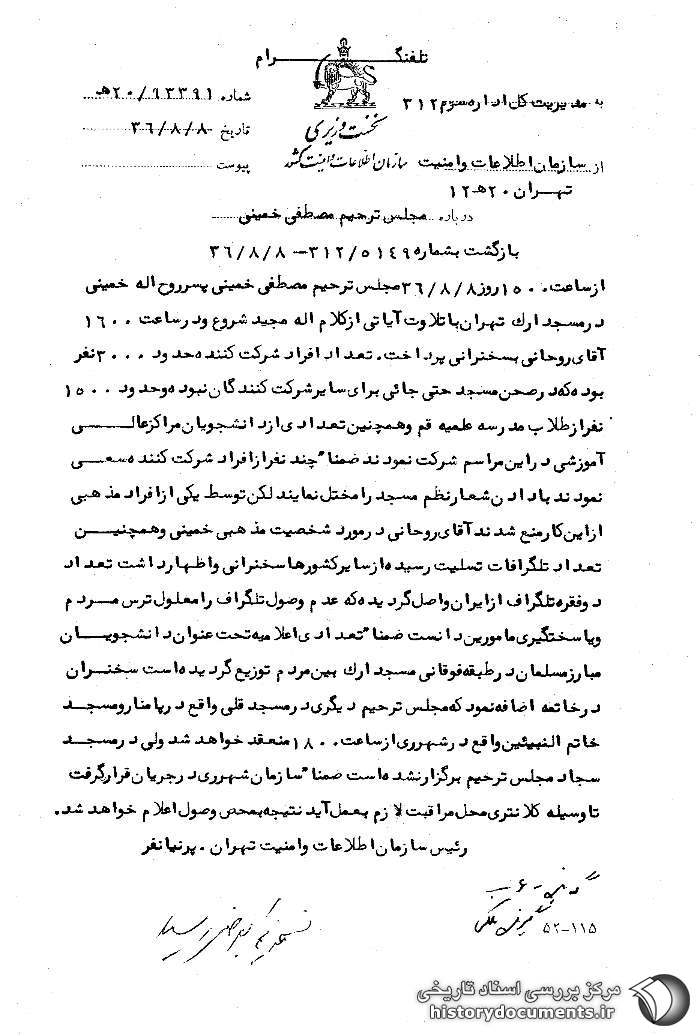 تلفنگرام
به مدیریت کل اداره سوم ۳۱۲
شماره ۲۰/۹۳۳۹۱ﻫ
نخست وزیری
تاریخ ۳۶/۸/۸
از سازمان اطلاعات وامنیت
سازمان اطلاعات و امنیت کشور
پیوست
تهران ۲۰ﻫ۱۲
درباره مجلس ترحیم مصطفی خمینی
بازگشت بشماره ۳۱۲/۵۱۴۹ – ۳۶/۸/۸
ازساعت ۱۵۰۰ روز ۳۶/۸/۸ مجلس ترحیم مصطفی خمینی پسر روح اله خمینی
در مسجد ارك تهران با تلاوت آیاتی از کلام اله مجید شروع ودر ساعت ۱۶۰۰
آقای روحانی بسخنرانی پرداخت. تعداد افراد شرکت کننده حدود ۳۰۰۰ نفر
بوده که در صحن مسجد حتی جائی برای سایر شرکت کنندگان نبوده وحدود ۱۵۰۰
نفر از طلاب مدرسه علمیه قم وهمچنین تعدادی از دانشجویان مراکز عالی
آموزشی در این مراسم شرکت نمودند ضمنا" چند نفر از افراد شرکت کننده سعی
نمودند با دادن شعار نظم مسجد را مختل نمایند لکن توسط یکی از افراد مذهبی
از این کار منع شدند آقای روحانی در مورد شخصیت مذهبی خمینی وهمچنین
تعداد تلگرافات تسلیت رسیده از سایر کشورها سخنرانی واظهار داشت تعداد
دوفقره تلگراف از ایران واصل گردیده که عدم وصول تلگراف را معلول ترس مردم
ویا سختگیری مامورین دانست ضمنا" تعدادی اعلامیه تحت عنوان دانشجویان
مبارز مسلمان در طبقه فوقانی مسجد ارك بین مردم توزیع گردیده است سخنران
در خاتمه اضافه نمود که مجلس ترحیم دیگری در مسجد قلی واقع در پامنار ومسجد
خاتم النبیئین واقع در شهرری از ساعت ۱۸۰۰ منعقد خواهد شد ولی در مسجد
سجاد مجلس ترحیم برگزار نشده است ضمنا" سازمان شهرری در جریان قرار گرفت
تا وسیله کلانتری محل مراقبت لازم بعمل آید نتیجه بمحض وصول اعلام خواهد شد.
رئیس سازمان اطلاعات وامنیت تهران . پرنیانفر
۵۲-۱۱۵
مرکز بررسی اسناد تاریخی
historydocuments.ir